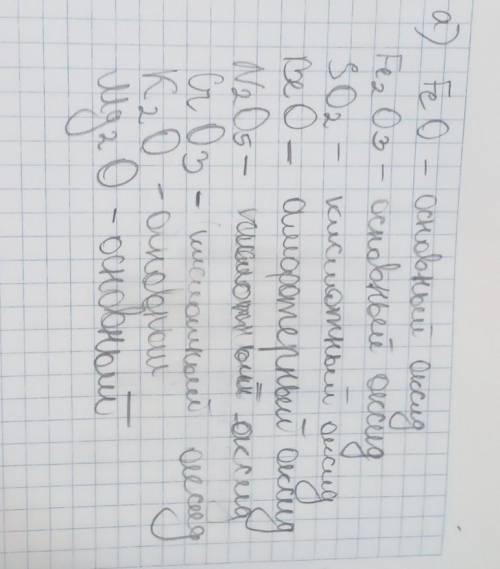 а) FeO – основный оксид
Fe2O3 – основный оксид
SO2 – кислотный оксид
BeO – амфотерный оксид
N2O5 – кислотный оксид
CrO3 – кислотный оксид
K2O – основный
Mg2O – основный